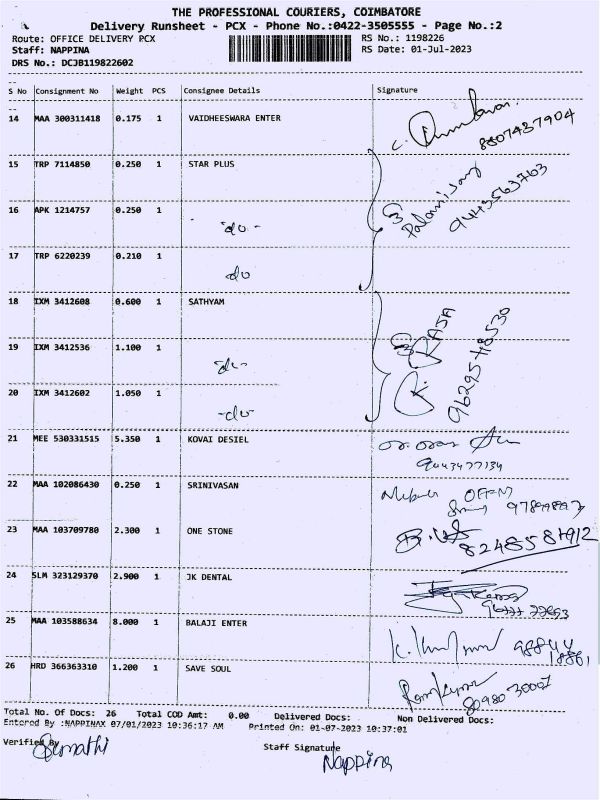 THE PROFESSIONAL COURIERS, COIMBATORE
Delivery Runsheet - PCX - Phone No.:0422-3505555 - Page No.:2
Route: OFFICE DELIVERY PCX
RS No.: 1198226
Staff: NAPPINA
RS Date: 01-Jul-2023
DRS No.: DCJB119822602
S No Consignment No Weight PCS Consignee Details Signature
14 MAA 300311418 0.175 1 VAIDHEESWARA ENTER
8807437904
15 TRP 7114850 0.250 1 STAR PLUS
Palanisamy
9443563763
16 APK 1214757 0.250 1
-do-
17 TRP 6220239 0.210 1
do
18 IXM 3412608 0.600 1 SATHYAM
RAJA
9629548530
19 IXM 3412536 1.100 1
-do-
20 IXM 3412602 1.050 1
-do-
21 MEE 530331515 5.350 1 KOVAI DESIEL
9443477134
22 MAA 102086430 0.250 1 SRINIVASAN
23 MAA 103709780 2.300 1 ONE STONE
8248581912
24 SLM 323129370 2.900 1 JK DENTAL
25 MAA 103588634 8.000 1 BALAJI ENTER
98844
18861
26 HRD 366363310 1.200 1 SAVE SOUL
80980 30007
Total No. Of Docs: 26 Total COD Amt: 0.00 Delivered Docs: Non Delivered Docs:
Entered By :NAPPINAX 07/01/2023 10:36:17 AM Printed On: 01-07-2023 10:37:01
Verified By
Sumathi
Staff Signature
Nappina